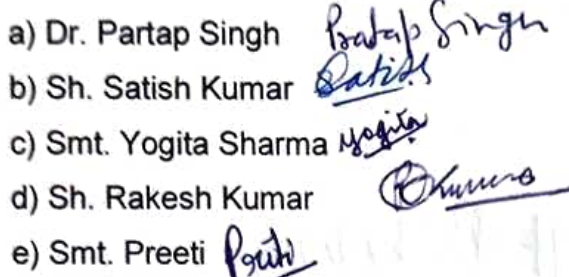 a) Dr. Partap Singh Partap Singh
b) Sh. Satish Kumar Satish
c) Smt. Yogita Sharma Yogita
d) Sh. Rakesh Kumar RKumar
e) Smt. Preeti Preeti